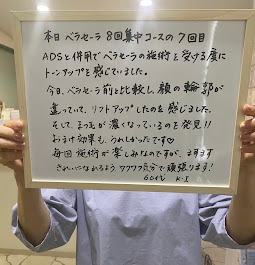 本日 ベラセーラ 8回集中コースの 7回目
ADSと併用でベラセラの施術を受ける度に
トーンアップを感じていました。
今日、ベラセラ前と比較し、顔の輪郭が
違っていて、リフトアップしたのを感じました。
そして、まつ毛が濃くなっているのを発見!!
おまけ効果も、うれしかったです♡
毎回施術が楽しみなのですが、ますます
きれいになれるよう ワクワク気分で頑張ります!
60代 K・I